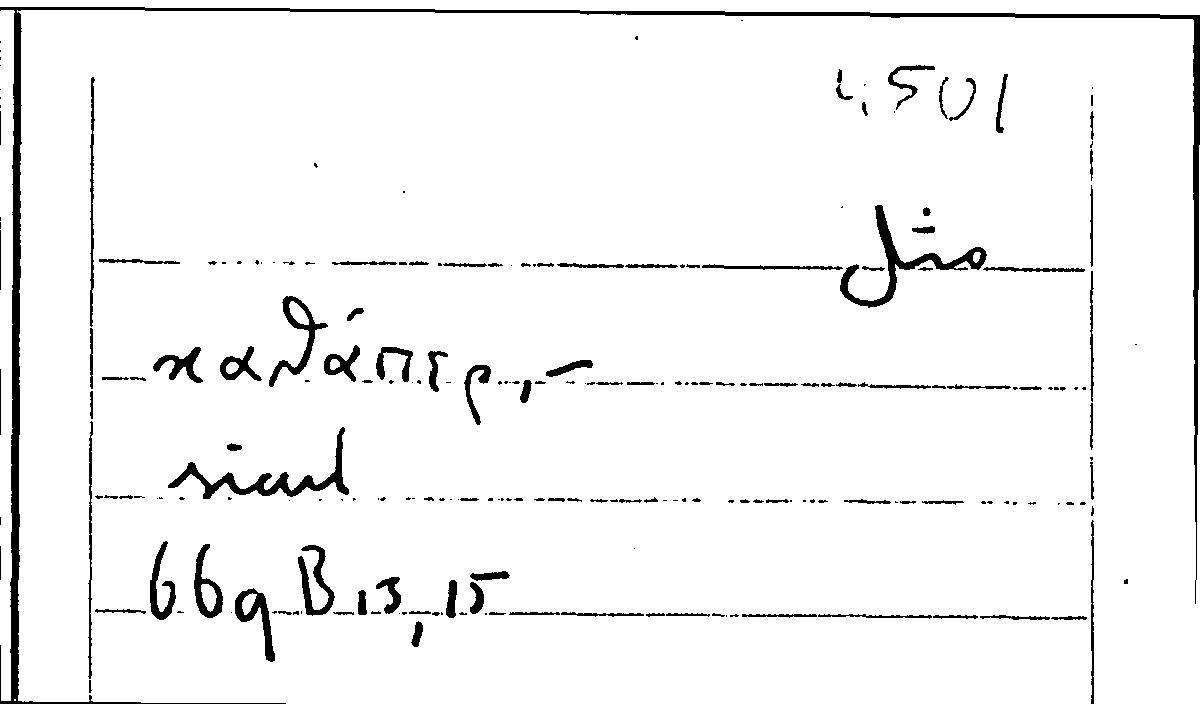 501
مثل
καθάπερ,-
sicut
669 B 13, 15